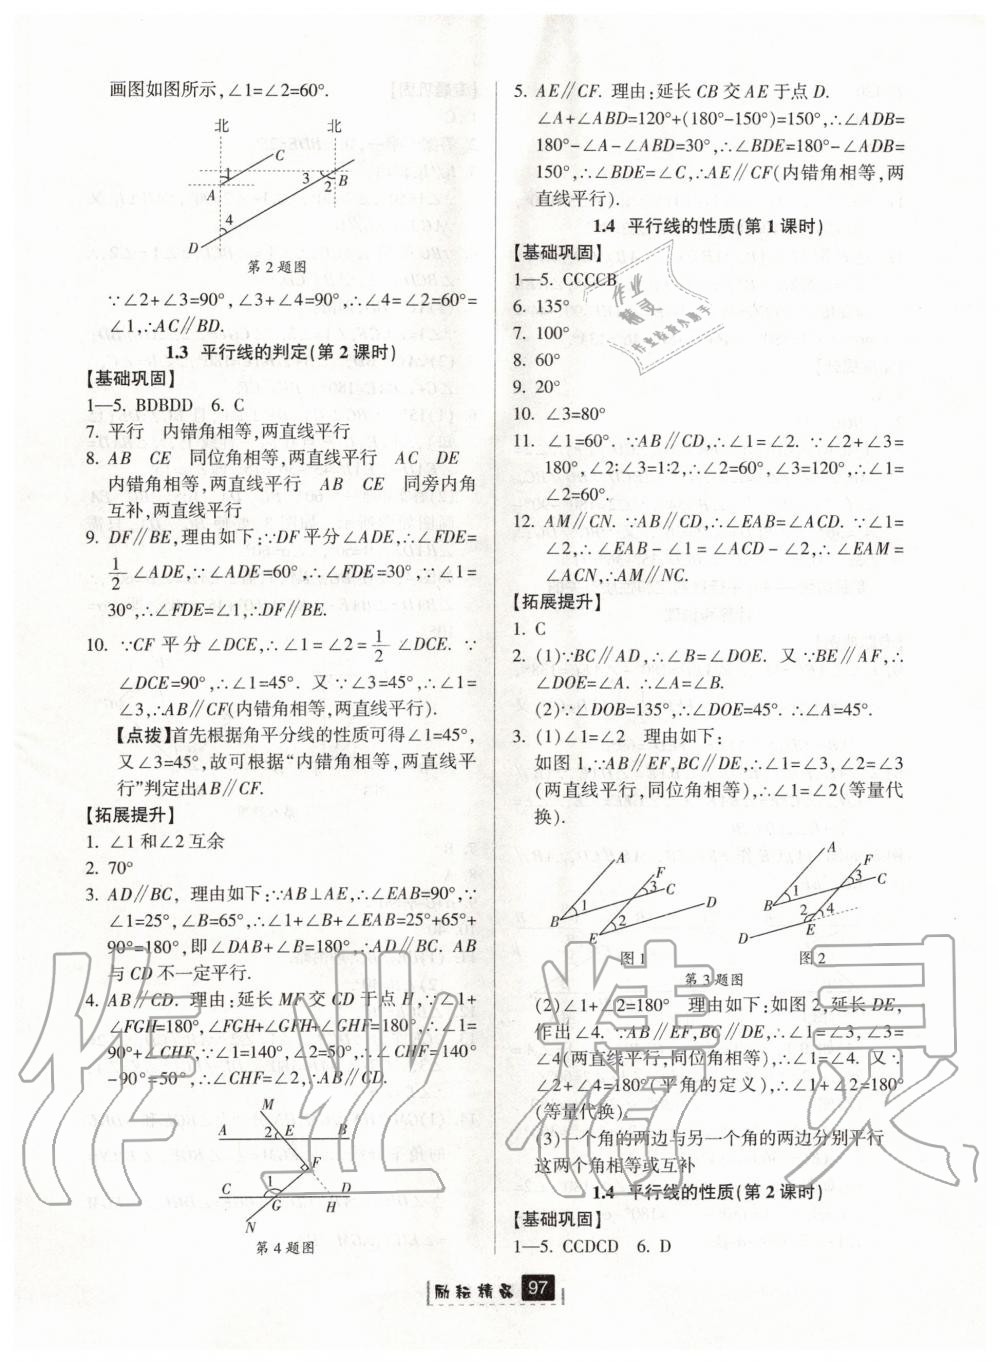 画图如图所示,∠1=∠2=60°.
北 北
C
1
A
3
2
B
4
D
第 2 题图
∵∠2+∠3=90°,∠3+∠4=90°,∴∠4=∠2=60°=
∠1,∴AC∥BD.
1.3 平行线的判定(第 2 课时)
【基础巩固】
1—5. BDBDD 6. C
7. 平行 内错角相等,两直线平行
8. AB CE 同位角相等,两直线平行 AC DE
内错角相等,两直线平行 AB CE 同旁内角
互补,两直线平行
9. DF∥BE,理由如下:∵DF平分∠ADE,∴∠FDE=
1/2∠ADE,∵∠ADE=60°,∴∠FDE=30°,∵∠1=
30°,∴∠FDE=∠1,∴DF∥BE.
10. ∵CF 平分∠DCE,∴∠1=∠2=1/2∠DCE. ∵
∠DCE=90°,∴∠1=45°. 又∵∠3=45°,∴∠1=
∠3,∴AB∥CF(内错角相等,两直线平行).
【点拨】首先根据角平分线的性质可得∠1=45°,
又∠3=45°,故可根据“内错角相等,两直线平
行”判定出AB∥CF.
【拓展提升】
1. ∠1和∠2互余
2. 70°
3. AD∥BC, 理由如下:∵AB⊥AE,∴∠EAB=90°,∵
∠1=25°,∠B=65°,∴∠1+∠B+∠EAB=25°+65°+
90°=180°,即∠DAB+∠B=180°,∴AD∥BC. AB
与CD不一定平行.
4. AB∥CD. 理由:延长MF交CD于点H,∵∠1+
∠FGH=180°,∠FGH+∠GFH+∠GHF=180°,∴∠1=
90°+∠CHF,∵∠1=140°,∠2=50°,∴∠CHF=140°
-90°=50°,∴∠CHF=∠2,∴AB∥CD.
M
A 2 E B
F
C 1 D
G H
N
第 4 题图
5. AE∥CF. 理由:延长CB交AE于点D.
∠A+∠ABD=120°+(180°-150°)=150°,∴∠ADB=
180°-∠A-∠ABD=30°,∴∠BDE=180°-∠ADB=
150°,∴∠BDE=∠C,∴AE∥CF(内错角相等,两
直线平行).
1.4 平行线的性质(第 1 课时)
【基础巩固】
1—5. CCCCB
6. 135°
7. 100°
8. 60°
9. 20°
10. ∠3=80°
11. ∠1=60°. ∵AB∥CD,∴∠1=∠2. ∵∠2+∠3=
180°,∠2∶∠3=1∶2,∴∠2=60°,∠3=120°,∴∠1=
∠2=60°.
12. AM∥CN. ∵AB∥CD,∴∠EAB=∠ACD. ∵∠1=
∠2,∴∠EAB-∠1=∠ACD-∠2,∴∠EAM=
∠ACN,∴AM∥NC.
【拓展提升】
1. C
2. (1)∵BC∥AD,∴∠B=∠DOE. 又∵BE∥AF,∴
∠DOE=∠A. ∴∠A=∠B.
(2)∵∠DOB=135°,∴∠DOE=45°. ∴∠A=45°.
3. (1)∠1=∠2 理由如下:
如图1,∵AB∥EF,BC∥DE,∴∠1=∠3,∠2=∠3
(两直线平行,同位角相等),∴∠1=∠2(等量代
换).
A F
3 C
1 D
B 2
E
图 1
A F
3 C
1
B 2 4
D E
图 2
第 3 题图
(2)∠1+∠2=180° 理由如下:如图2,延长DE,
作出∠4. ∵AB∥EF,BC∥DE,∴∠1=∠3,∠3=
∠4(两直线平行,同位角相等),∴∠1=∠4. 又∵
∠2+∠4=180°(平角的定义),∴∠1+∠2=180°
(等量代换).
(3)一个角的两边与另一个角的两边分别平行
这两个角相等或互补
1.4 平行线的性质(第 2 课时)
【基础巩固】
1—5. CCDCD 6. D
励耘精品 97
作业精灵
作业
精灵
作业检查小助手